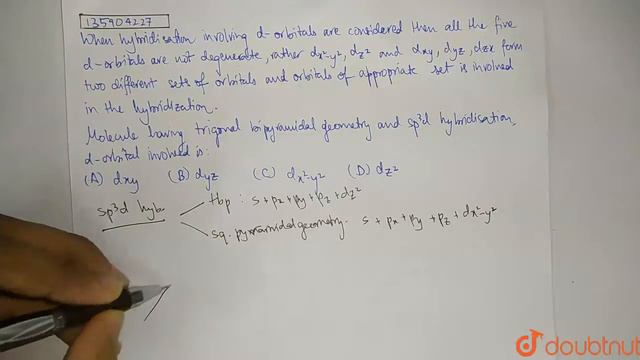 135904227
When hybridisation involving d-orbitals are considered then all the five
d-orbitals are not degenerate, rather dx²-y², dz² and dxy, dyz, dzx form
two different sets of orbitals and orbitals of appropriate set is involved
in the hybridization.
Molecule having trigonal bipyramidal geometry and sp³d hybridisation,
d-orbital involved is:
(A) dxy (B) dyz (C) dx²-y² (D) dz²
sp³d hyb
tbp : s + px + py + pz + dz²
sq. pyramidal geometry. s + px + py + pz + dx²-y²
doubtnut